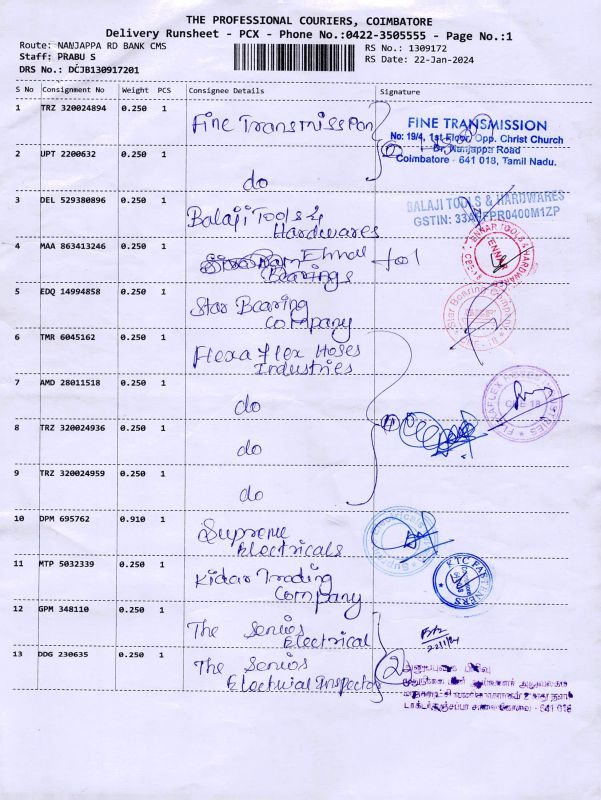 THE PROFESSIONAL COURIERS, COIMBATORE
Delivery Runsheet - PCX - Phone No.:0422-3505555 - Page No.:1
Route: NANJAPPA RD BANK CMS
RS No.: 1309172
Staff: PRABU S
RS Date: 22-Jan-2024
DRS No.: DCJB130917201
S No Consignment No Weight PCS Consignee Details Signature
1 TRZ 320024894 0.250 1 Fine Transmission
FINE TRANSMISSION
No: 19/4, 1st Floor, Opp. Christ Church
Dr. Nanjappa Road
Coimbatore - 641 018, Tamil Nadu.
2 UPT 2200632 0.250 1 do
3 DEL 529380896 0.250 1 Balaji Tools &
Hardwares
BALAJI TOOLS & HARDWARES
4 MAA 863413246 0.250 1
Bearings
ENNAR TOOLS & HARDWARE
5 EDQ 14994858 0.250 1 Star Bearing
Company
Star Bearing Company
6 TMR 6045162 0.250 1 Flexaflex Hoses
Industries
7 AMD 28011518 0.250 1 do
8 TRZ 320024936 0.250 1 do
9 TRZ 320024959 0.250 1 do
10 DPM 695762 0.910 1 Supreme
Electricals
11 MTP 5032339 0.250 1 Kidar Trading
Company
KTC FASTENERS
12 GPM 348110 0.250 1 The Senior
Electrical
13 DDG 230635 0.250 1 The Senior
Electrical Inspector
2